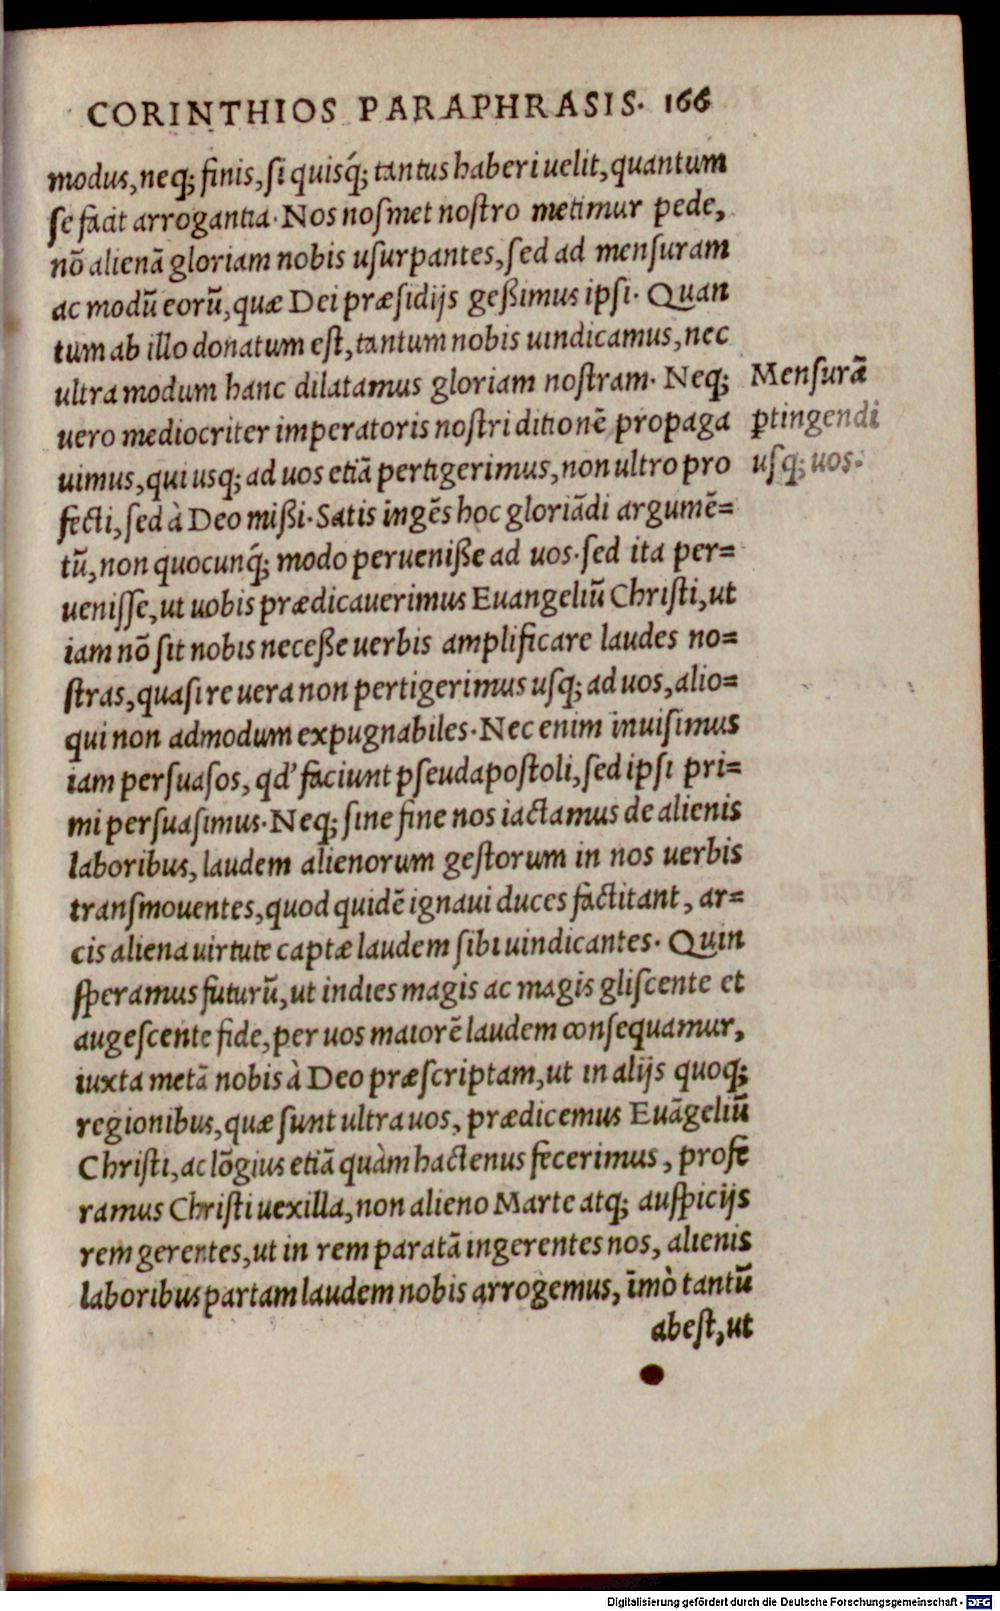 CORINTHIOS PARAPHRASIS. 166
modus, neq; finis, ſi quisq́; tantus haberi uelit, quantum
ſe facit arrogantia. Nos noſmet noſtro metimur pede,
nõ alienã gloriam nobis uſurpantes, ſed ad menſuram
ac modũ eorũ, quæ Dei præſidijs geßimus ipſi. Quan
tum ab illo donatum eſt, tantum nobis uindicamus, nec
ultra modum hanc dilatamus gloriam noſtram. Neq;
uero mediocriter imperatoris noſtri ditionẽ propaga
uimus, qui usq; ad uos etiã pertigerimus, non ultro pro
fecti, ſed à Deo mißi. Satis ingẽs hoc gloriãdi argumẽ=
tũ, non quocunq́; modo perueniße ad uos. ſed ita per=
ueniſſe, ut uobis prædicauerimus Euangeliũ Chriſti, ut
iam nõ ſit nobis neceße uerbis amplificare laudes no=
ſtras, quaſi re uera non pertigerimus uſq; ad uos, alio=
qui non admodum expugnabiles. Nec enim inuiſimus
iam perſuaſos, qd' faciunt pſeudapoſtoli, ſed ipſi pri=
mi perſuaſimus. Neq; ſine fine nos iactamus de alienis
laboribus, laudem alienorum geſtorum in nos uerbis
tranſmouentes, quod quidẽ ignaui duces factitant, ar=
cis aliena uirtute captæ laudem ſibi uindicantes. Quin
ſperamus futurũ, ut indies magis ac magis gliſcente et
augeſcente fide, per uos maiorẽ laudem conſequamur,
iuxta metã nobis à Deo præſcriptam, ut in alijs quoq;
regionibus, quæ ſunt ultra uos, prædicemus Euãgeliũ
Chriſti, ac lõgius etiã quàm hactenus fecerimus, profe
ramus Chriſti uexilla, non alieno Marte atq; auſpicijs
rem gerentes, ut in rem paratã ingerentes nos, alienis
laboribus partam laudem nobis arrogemus, īmò tantũ
abeſt, ut
Menſurã
ꝑtingendi
uſq; uos.
Digitalisierung gefördert durch die Deutsche Forschungsgemeinschaft - DFG